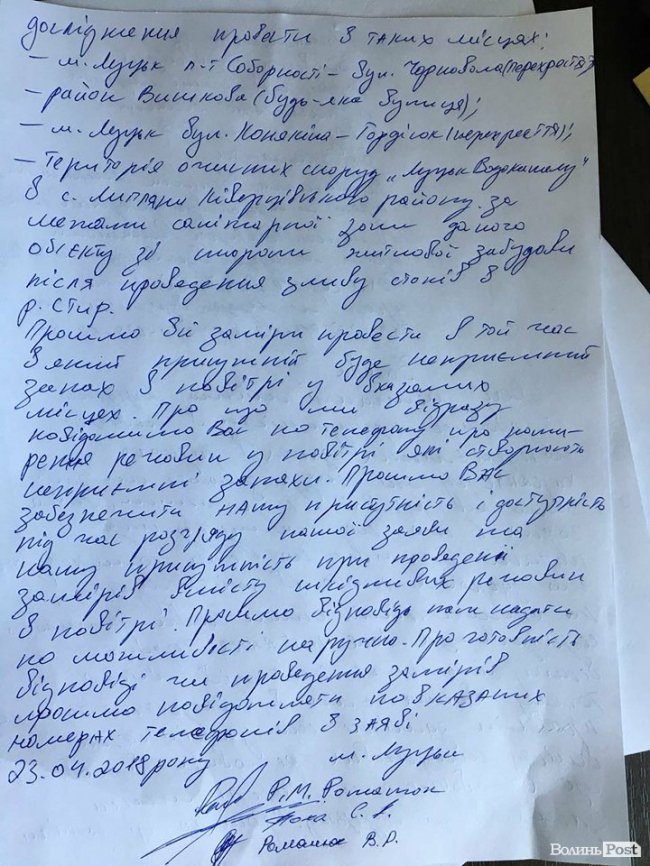 дослідження провести в таких місцях:
– м. Луцьк п-т Соборності – вул. Чорновола (перехрестя);
– район Вишкова (будь-яка вулиця);
– м. Луцьк вул. Конякіна – Гордіюк (перехрестя);
– Територія очисних споруд „Луцьк Водоканалу"
в с. Липляни Ківерцівського району за
межами санітарної зони даного
обієкту зі сторони житлової забудови
після проведення зливу стоків в
р. Стир.
Прошмо ві заміри провести в той час
в який присутній буде неприємний
запах в повітрі у вказаних
місцях. Про що ми відразу
повідомимо Вас по телефону про поши-
рення речовин у повітрі які створюють
неприємні запахи. Прошмо ВАС
забезпечити нашу присутність і доступність
під час розгляду нашої заяви та
нашу присутність при проведені
замірів вмісту шкідливих речовин
в повітрі. Прошмо відповідь нам надати
по можливості наручно. Про готовність
відповіді чи проведення замірів
прошмо повідомляти по вказаних
номерах телефонів в заяві
23.04.2018 року м. Луцьк
Р.М. Романюк
С. А.
Романюк В. Р.
ВолиньPost